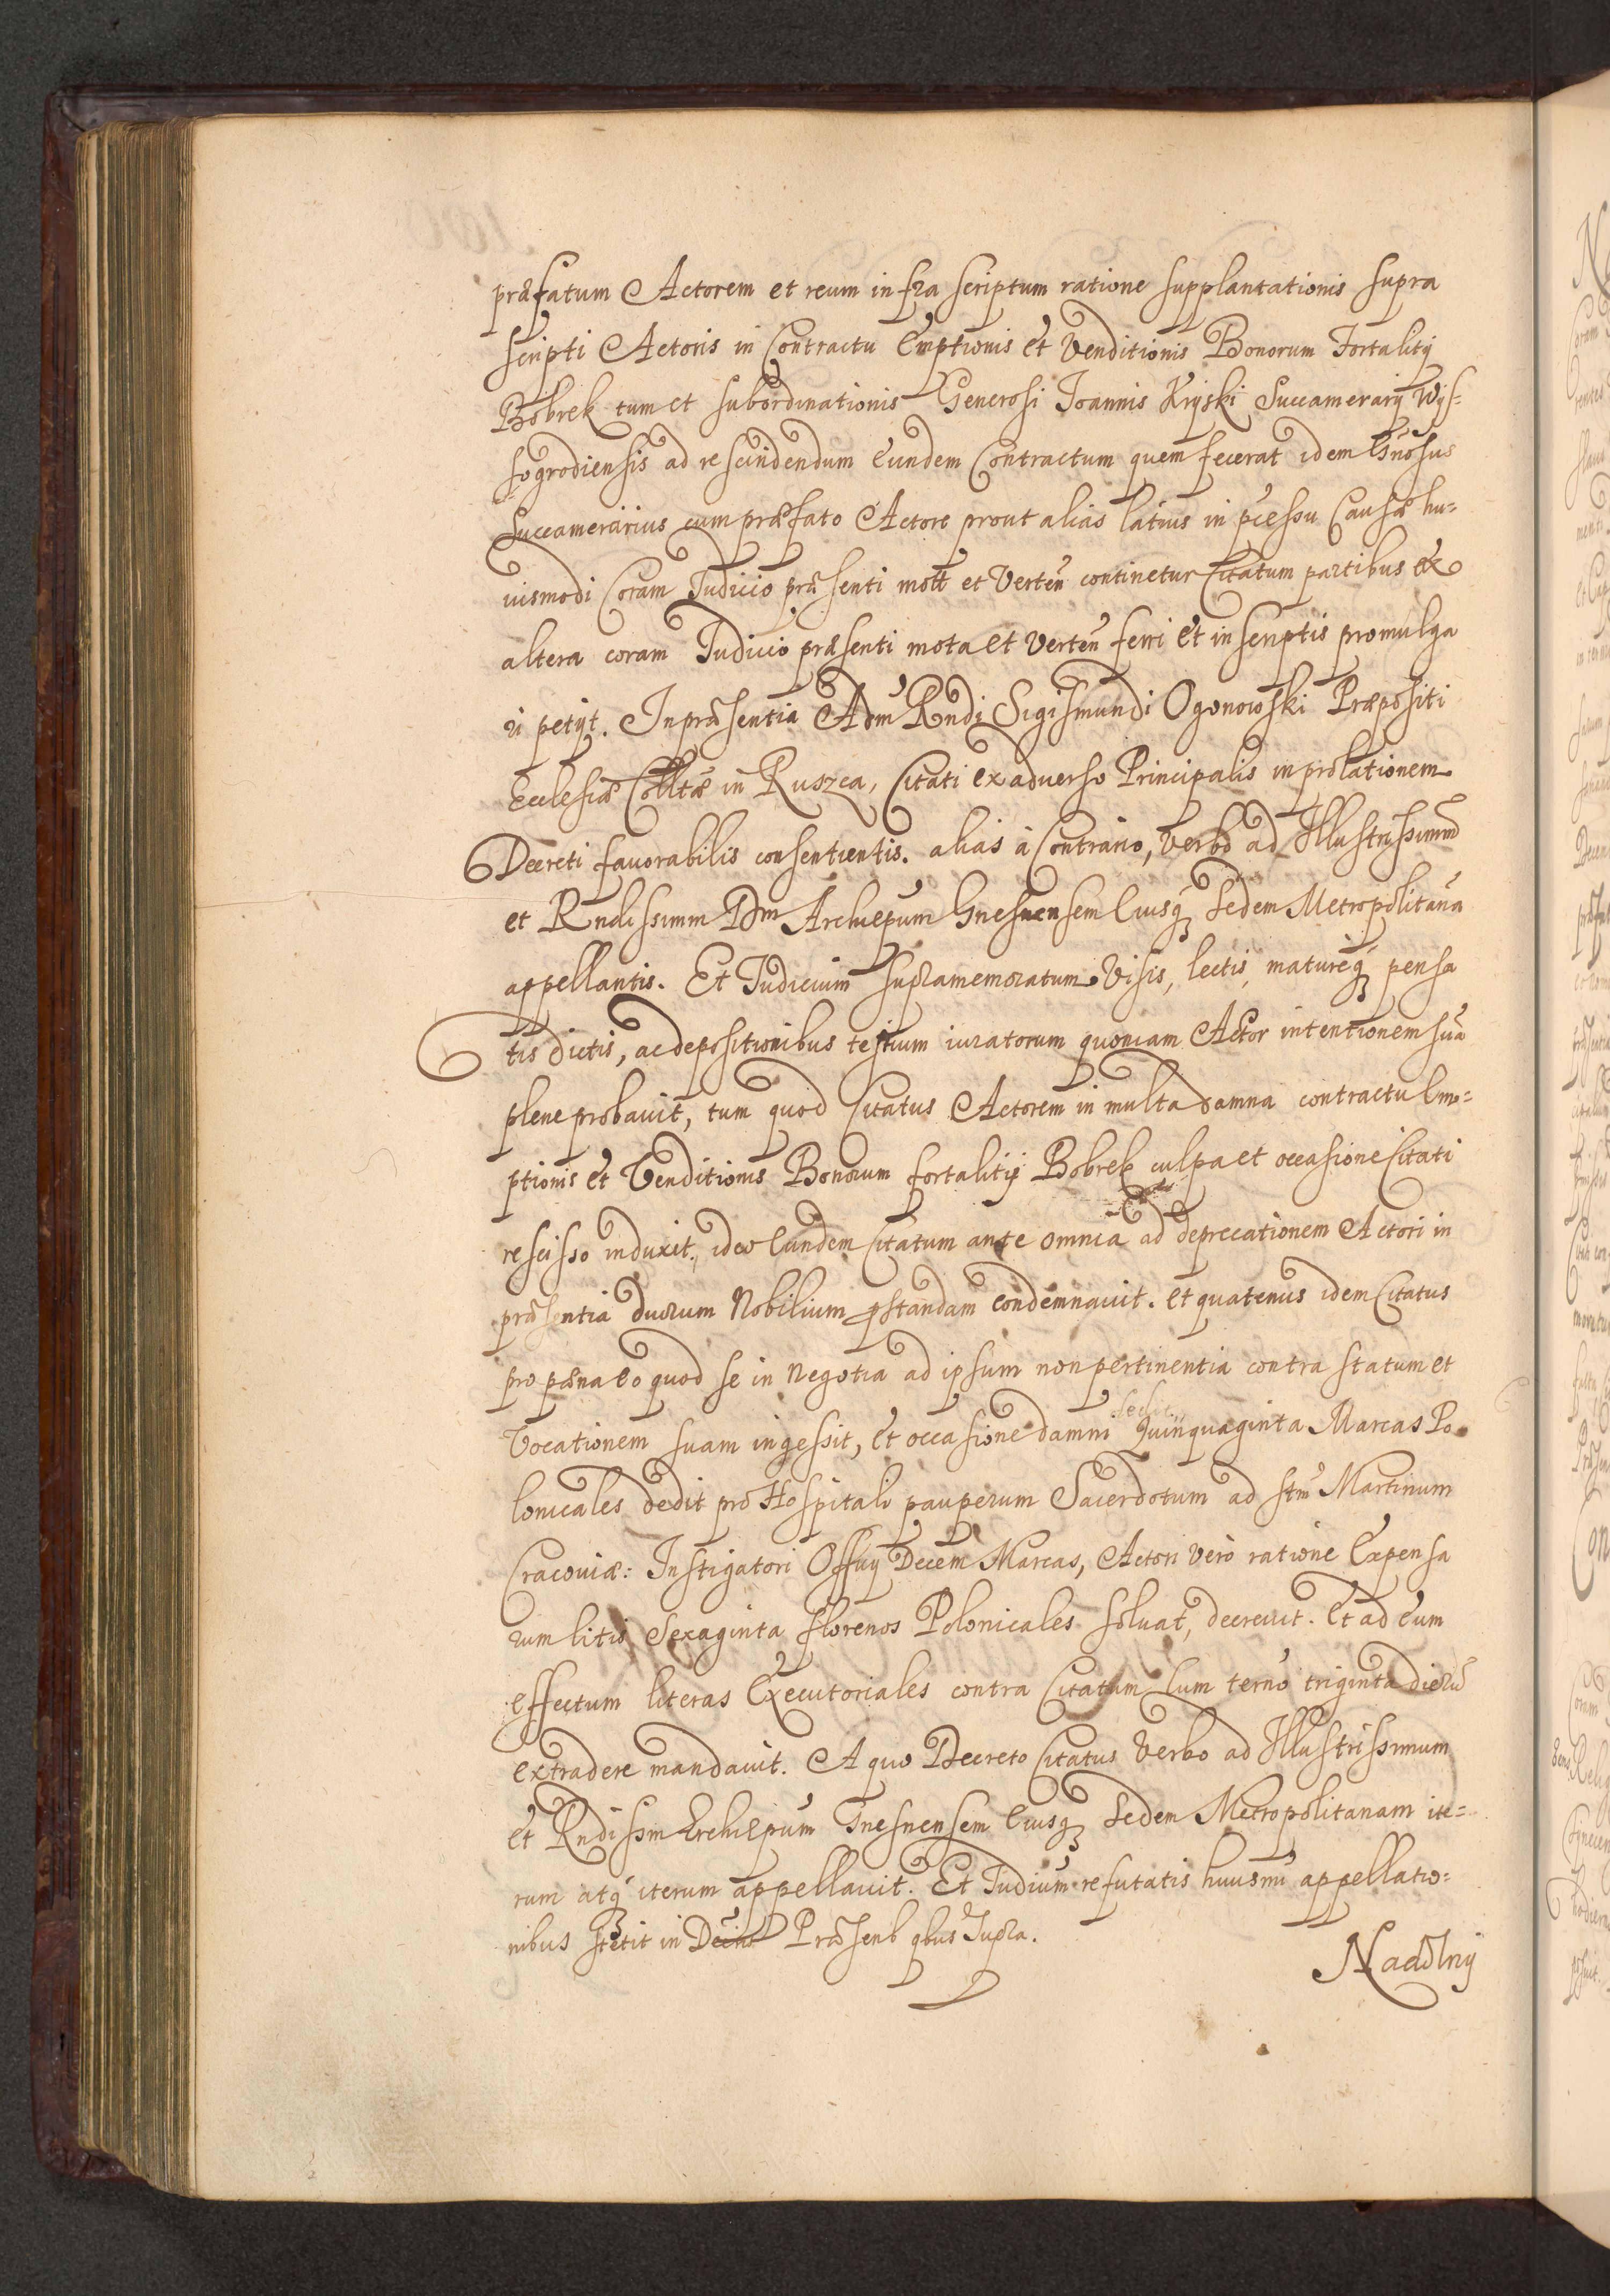 præfatum Actorem et reum infra scriptum ratione supplantationis supra
scripti Actoris in Contractu Emptionis et Venditionis Bonorum Fortalitÿ
Bobrek tum et subordinationis Generosi Joannis Krÿski Succamerarÿ Wÿs=
sogrodiensis ad rescindendum eundem Contractum quem fecerat idem Gnosus
Succamerarius cum præfato Actore prout alias latius in pcessu Causæ hu=
iusmodi Coram Judicio præsenti mott et Verten continetur Citatum partibus ex
altera coram Judicio præsenti mota et Verten ferri et in scriptis promulga
ri petÿt. In præsentia Adm Rndi Sigismundi Ogonowski Præpositi
Ecclesiæ Colltæ in Ruszca, Citati ex adverso Principalis in prolationem
Decreti favorabilis consentientis. alias à Contrario, verbo ad Illustrissimm
et Rndissimm Dnm Archiepum Gnesnensem Eiusq Sedem Metropolitana
appellantis. Et Judicium supramemoratum Visis, lectis, matureq pensa
tis dictis, ac depositionibus testium iuratorum quoniam Actor intentionem sua
plene probavit, tum quod Citatus Actorem in multa damna contractu Em=
ptionis et Venditionis Bonorum fortalitÿ Bobrek culpa et occasione Citati
rescisso induxit, ideo Eundem Citatum ante omnia ad deprecationem Actori in
præsentia duorum Nobilium pstandam condemnauit. et quatenus idem Citatus
pro pæna eo quod se in negotia ad ipsum non pertinentia contra statum et
Vocationem suam ingessit, et occasione damni Quinquaginta Marcas Po
lonicales dedit pro Hospitali pauperum Sacerdotum ad stm Martinum
Cracoviæ: Instigatori Offÿ Decem Marcas, Actori vero ratione Expensa
rum litis Sexaginta florenos Polonicales soluat, decreuit. Et ad eum
effectum literas Executoriales contra Citatum cum terno triginta dieru
extradere mandavit. A quo Decreto Citatus Verbo ad Illustrissimum
et Rndissm Archiepum Gnesnensem Eiusq Sedem Metropolitanam ite=
rum atq iterum appellauit. Et Judium refutatis huiusmi appellatio=
nibus stetit in Præsenb qbus supra.
Nadolnÿ